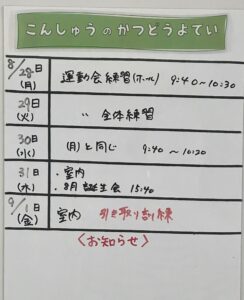 こんしゅうのかつどうよてい
8/28日(月) 運動会練習(ホール) 9:40~10:30
29日(火) 〃 全体練習
30日(水) (月)と同じ 9:40 ~10:30
31日(木) ・室内
・8月誕生会 15:40
9/1日(金) 室内 引き取り訓練
<お知らせ>